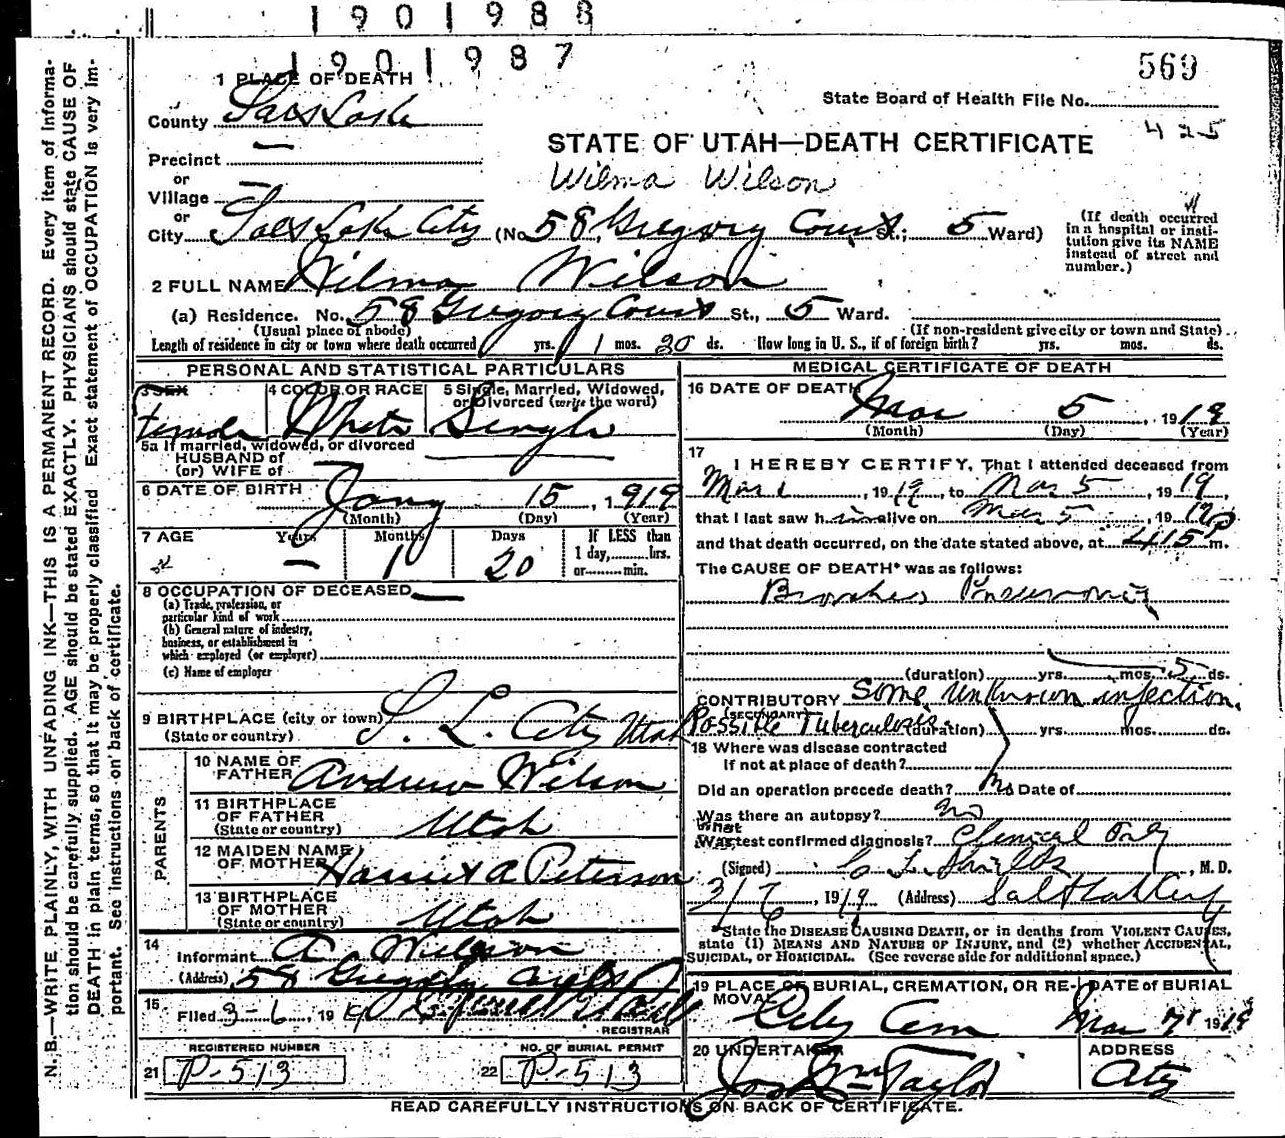 1901988
1901987
569
1 PLACE OF DEATH
State Board of Health File No.
425
County Salt Lake
STATE OF UTAH—DEATH CERTIFICATE
Precinct —
Wilma Wilson
or
Village —
or
City Salt Lake City (No. 58 Gregory Court St.; 5 Ward)
(If death occurred in a hospital or institution give its NAME instead of street and number.)
2 FULL NAME Wilma Wilson
(a) Residence. No. 58 Gregory Court St., 5 Ward.
(Usual place of abode) (If non-resident give city or town and State)
Length of residence in city or town where death occurred yrs. 1 mos. 20 ds. How long in U. S., if of foreign birth? yrs. mos. ds.
PERSONAL AND STATISTICAL PARTICULARS
3 SEX Female
4 COLOR OR RACE White
5 Single, Married, Widowed, or Divorced (write the word) Single
5a If married, widowed, or divorced
HUSBAND of
(or) WIFE of —
6 DATE OF BIRTH Jany 15, 1919
(Month) (Day) (Year)
7 AGE Years — Months 1 Days 20
If LESS than
1 day, hrs.
or min.
8 OCCUPATION OF DECEASED —
(a) Trade, profession, or
particular kind of work
(b) General nature of industry,
business, or establishment in
which employed (or employer)
(c) Name of employer
9 BIRTHPLACE (city or town) S. L. City Utah
(State or country)
PARENTS
10 NAME OF FATHER Andrew Wilson
11 BIRTHPLACE OF FATHER Utah
(State or country)
12 MAIDEN NAME OF MOTHER Harriet A Peterson
13 BIRTHPLACE OF MOTHER Utah
(State or country)
14
Informant A Wilson
(Address) 58 Gregory
15
Filed 3-6, 19
REGISTRAR
REGISTERED NUMBER
21 P-513
NO. OF BURIAL PERMIT
22 P-513
MEDICAL CERTIFICATE OF DEATH
16 DATE OF DEATH Mar 5, 1919
(Month) (Day) (Year)
17
I HEREBY CERTIFY, That I attended deceased from
Mar 1, 1919, to Mar 5, 1919,
that I last saw h alive on Mar 5, 19
and that death occurred, on the date stated above, at 415 P m.
The CAUSE OF DEATH* was as follows:
Pneumonia
(duration) yrs. mos. 5 ds.
CONTRIBUTORY Some unknown infection.
(SECONDARY)
Possible Tuberculosis (duration) yrs. mos. ds.
18 Where was disease contracted
If not at place of death?
Did an operation precede death? No Date of
Was there an autopsy? No
What test confirmed diagnosis? Clinical Only
(Signed) C L Shields, M. D.
3/6, 1919 (Address) Salt Lake City
*State the DISEASE CAUSING DEATH, or in deaths from VIOLENT CAUSES,
state (1) MEANS AND NATURE OF INJURY, and (2) whether ACCIDENTAL,
SUICIDAL, or HOMICIDAL. (See reverse side for additional space.)
19 PLACE OF BURIAL, CREMATION, OR REMOVAL City Cem
DATE of BURIAL Mar 7 1919
20 UNDERTAKER Jos Wm Taylor
ADDRESS City
READ CAREFULLY INSTRUCTIONS ON BACK OF CERTIFICATE.
N. B.—WRITE PLAINLY, WITH UNFADING INK—THIS IS A PERMANENT RECORD. Every item of information should be carefully supplied. AGE should be stated EXACTLY. PHYSICIANS should state CAUSE OF DEATH in plain terms, so that it may be properly classified. Exact statement of OCCUPATION is very important. See instructions on back of certificate.